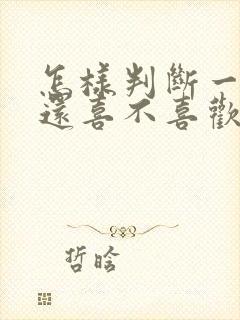 怎樣判斷一
還喜不喜歡
哲晗